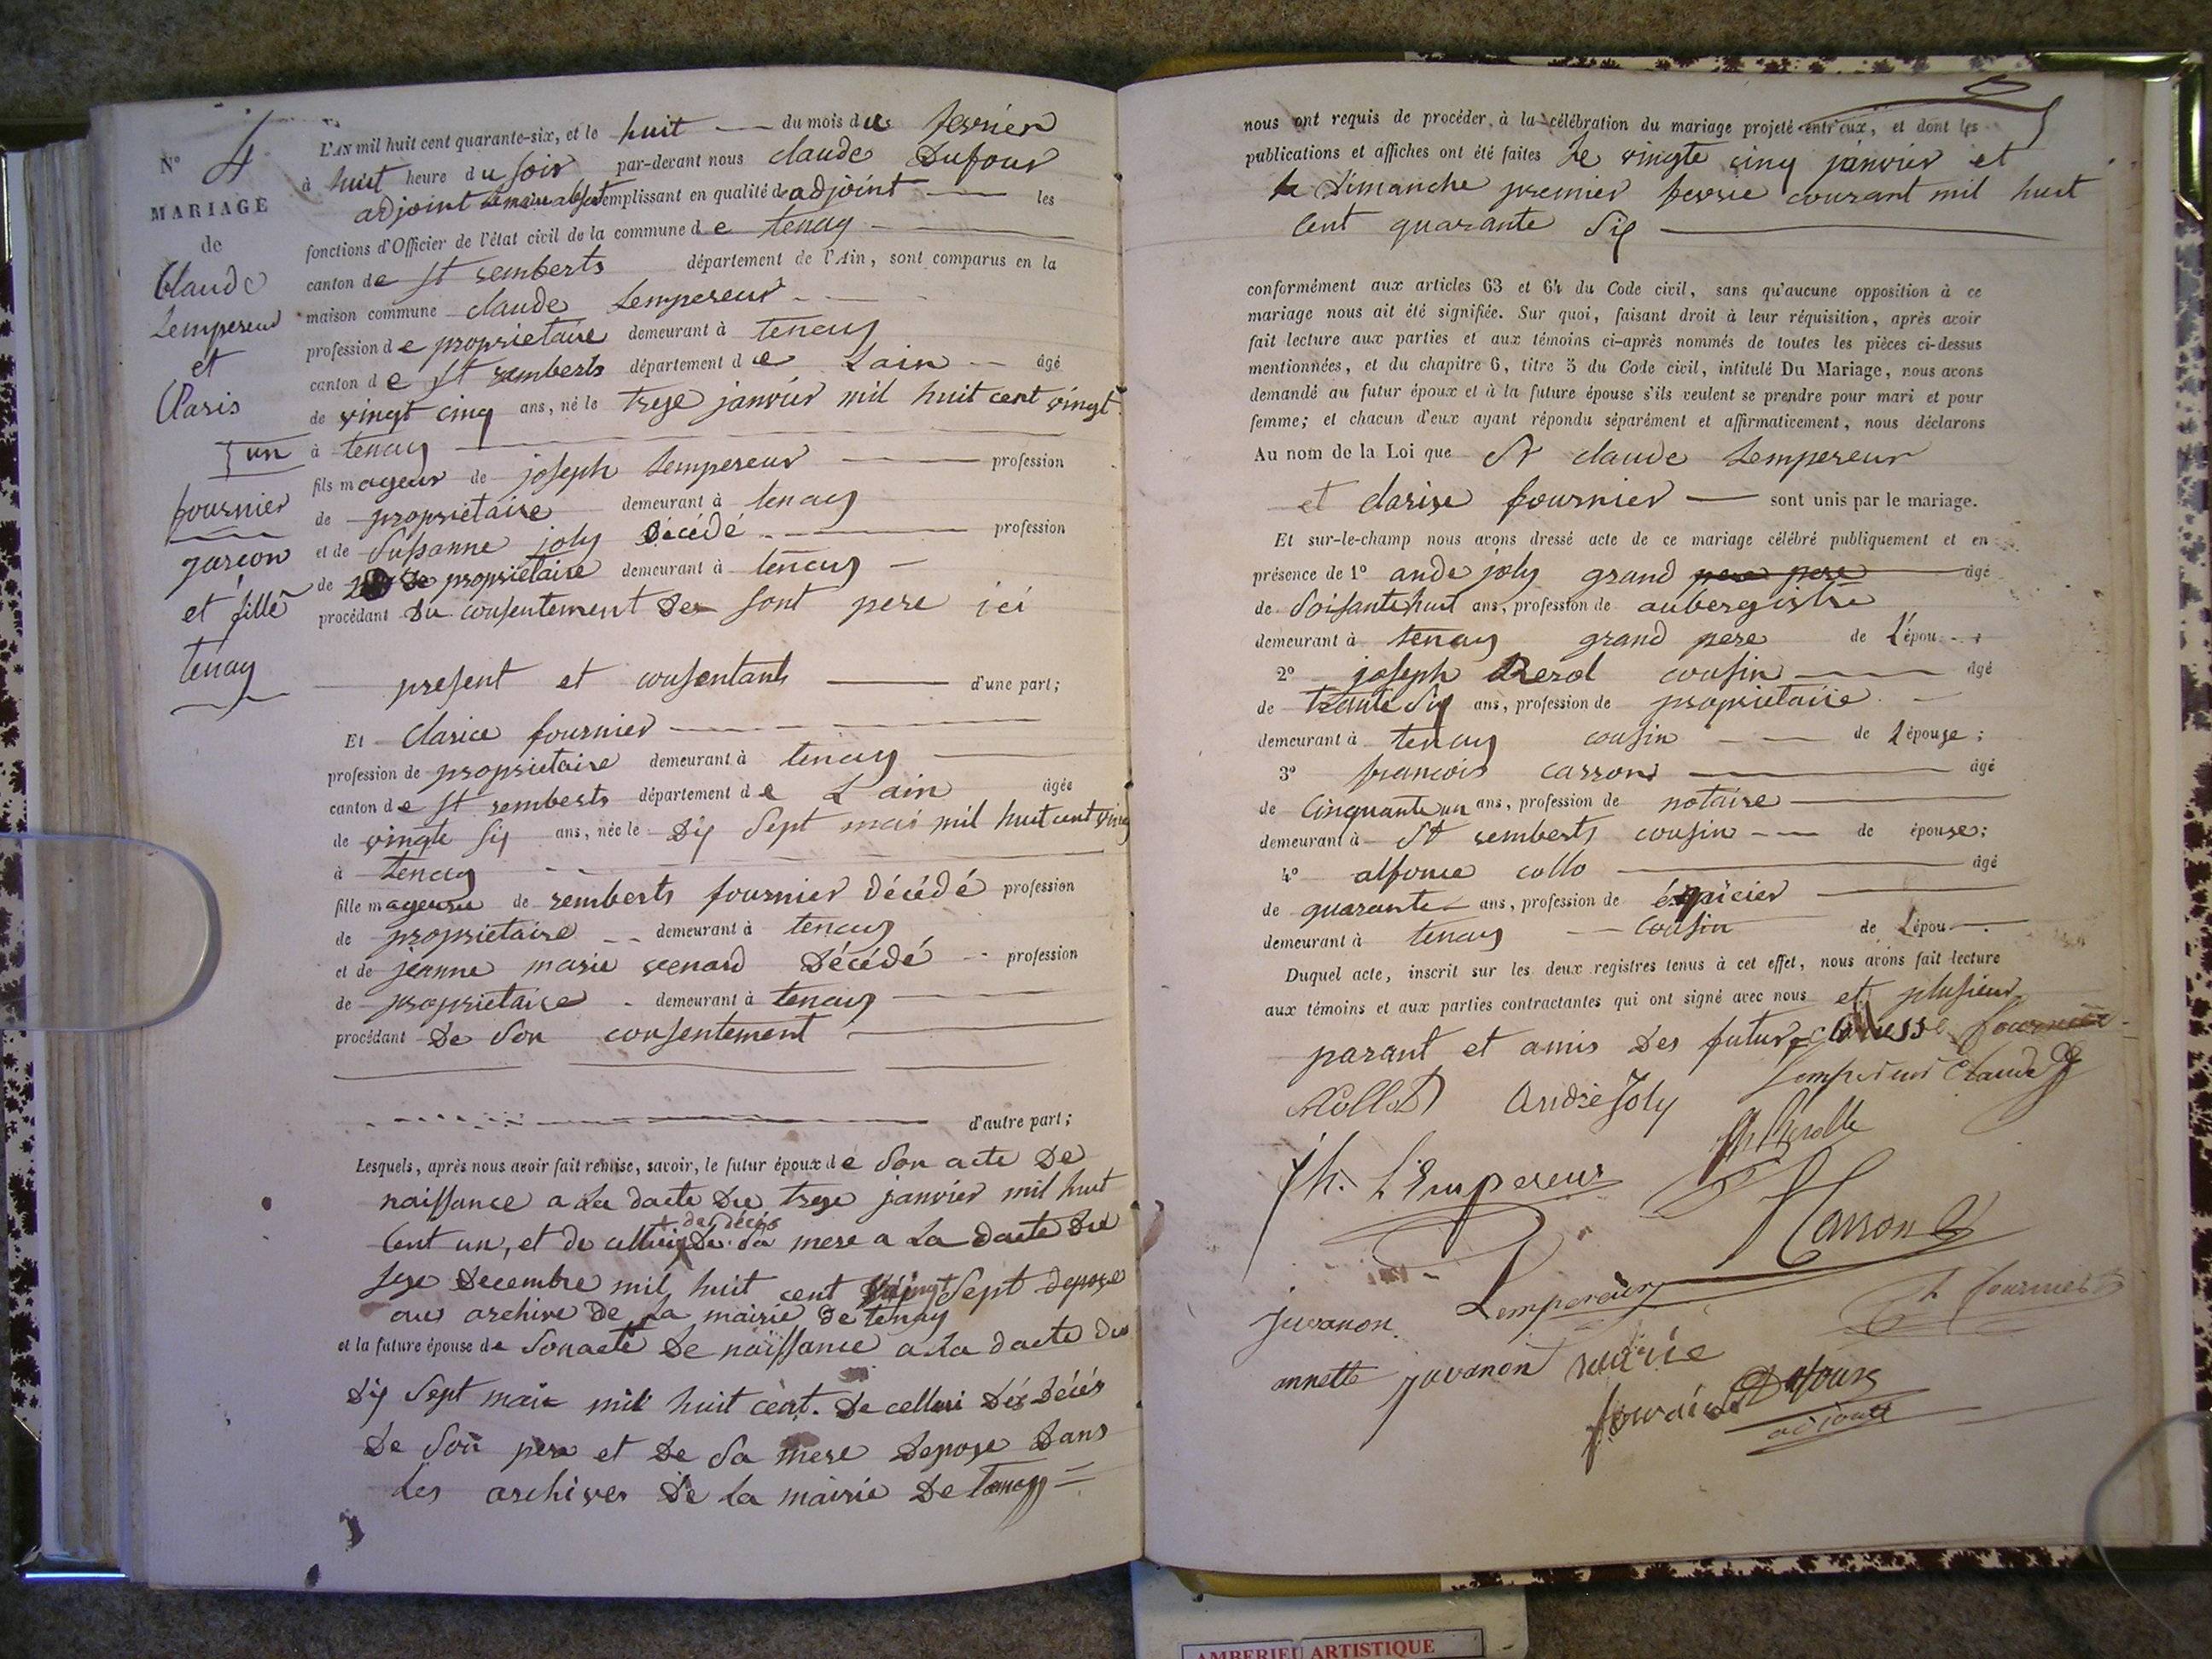 N° 4
MARIAGE
de
Claude
Lempereur
et
Claris
fournier
garcon
et fille
tenay
L'AN mil huit cent quarante-six, et le huit du mois de fevrier
à huit heure du soir par-devant nous claude Dufour
adjoint le maire absent remplissant en qualité de adjoint les
fonctions d'Officier de l'état civil de la commune de tenay
canton de st remberts département de l'Ain, sont comparus en la
maison commune claude Lempereur
profession de proprietaire demeurant à tenay
canton de st ramberts département de Lain âgé
de vingt cinq ans, né le treze janvier mil huit cent vingt
un à tenay
fils mageur de joseph Lempereur profession
de proprietaire demeurant à tenay
et de Sussanne joly Décédé profession
de proprietaire demeurant à tenay
procédant du consentement De sont pere ici
present et consentant d'une part;
Et Clarice fournier
profession de proprietaire demeurant à tenay
canton de st remberts département de Lain âgée
de vingte six ans, née le Dix Sept mai mil huit cent vingt
à tenay
fille mageure de remberts fournier décédé profession
de proprietaire demeurant à tenay
et de jeanne marie Décédé profession
de proprietaire demeurant à tenay
procédant De Son consentement
d'autre part;
Lesquels, après nous avoir fait remise, savoir, le futur époux de Son acte De
naissance a La dacte Du treze janvier mil huit
Cent un, et de cellui des décès De Sa mere a La dacte Du
seze Decembre mil huit cent vingt Sept depose
aus archive de La mairie de tenay
et la future épouse de Son acte De naissance a La dacte du
Dix Sept mai mil huit cent. De cellui Des Décés
De Son pere et De Sa mere Depose Dans
Les archives De La mairie De Tenay
nous ont requis de procéder à la célébration du mariage projeté entr'eux, et dont les
publications et affiches ont été faites Le vingte cinq janvier et
le Dimanche premier fevrie courant mil huit
Cent quarante Six
conformément aux articles 63 et 64 du Code civil, sans qu'aucune opposition à ce
mariage nous ait été signifiée. Sur quoi, faisant droit à leur réquisition, après avoir
fait lecture aux parties et aux témoins ci-après nommés de toutes les pièces ci-dessus
mentionnées, et du chapitre 6, titre 5 du Code civil, intitulé Du Mariage, nous avons
demandé au futur époux et à la future épouse s'ils veulent se prendre pour mari et pour
femme; et chacun d'eux ayant répondu séparément et affirmativement, nous déclarons
Au nom de la Loi que Sr claude Lempereur
et clarise fournier sont unis par le mariage.
Et sur-le-champ nous avons dressé acte de ce mariage célébré publiquement et en
présence de 1° ande joly grand pere âgé
de Soisante huit ans, profession de aubergistre
demeurant à tenay grand pere de L'épou
2° joseph cousin âgé
de trante Six ans, profession de proprietaire
demeurant à tenay cousin de Lépouse;
3° francois carrond âgé
de Cinquante un ans, profession de notaire
demeurant à St remberts cousin de épouse;
4° alfonce collo âgé
de quarante ans, profession de épicier
demeurant à tenay Cousin de Lépou
Duquel acte, inscrit sur les deux registres tenus à cet effet, nous avons fait lecture
aux témoins et aux parties contractantes qui ont signé avec nous et plusieur
parant et amis Des futur fournier
André Joly Lempereur Claude
Jh. L'Empereur
Carron
juvanon Lempereur fournier
annette juvanon marie
Dufour
adjoint
AMBERIEU ARTISTIQUE